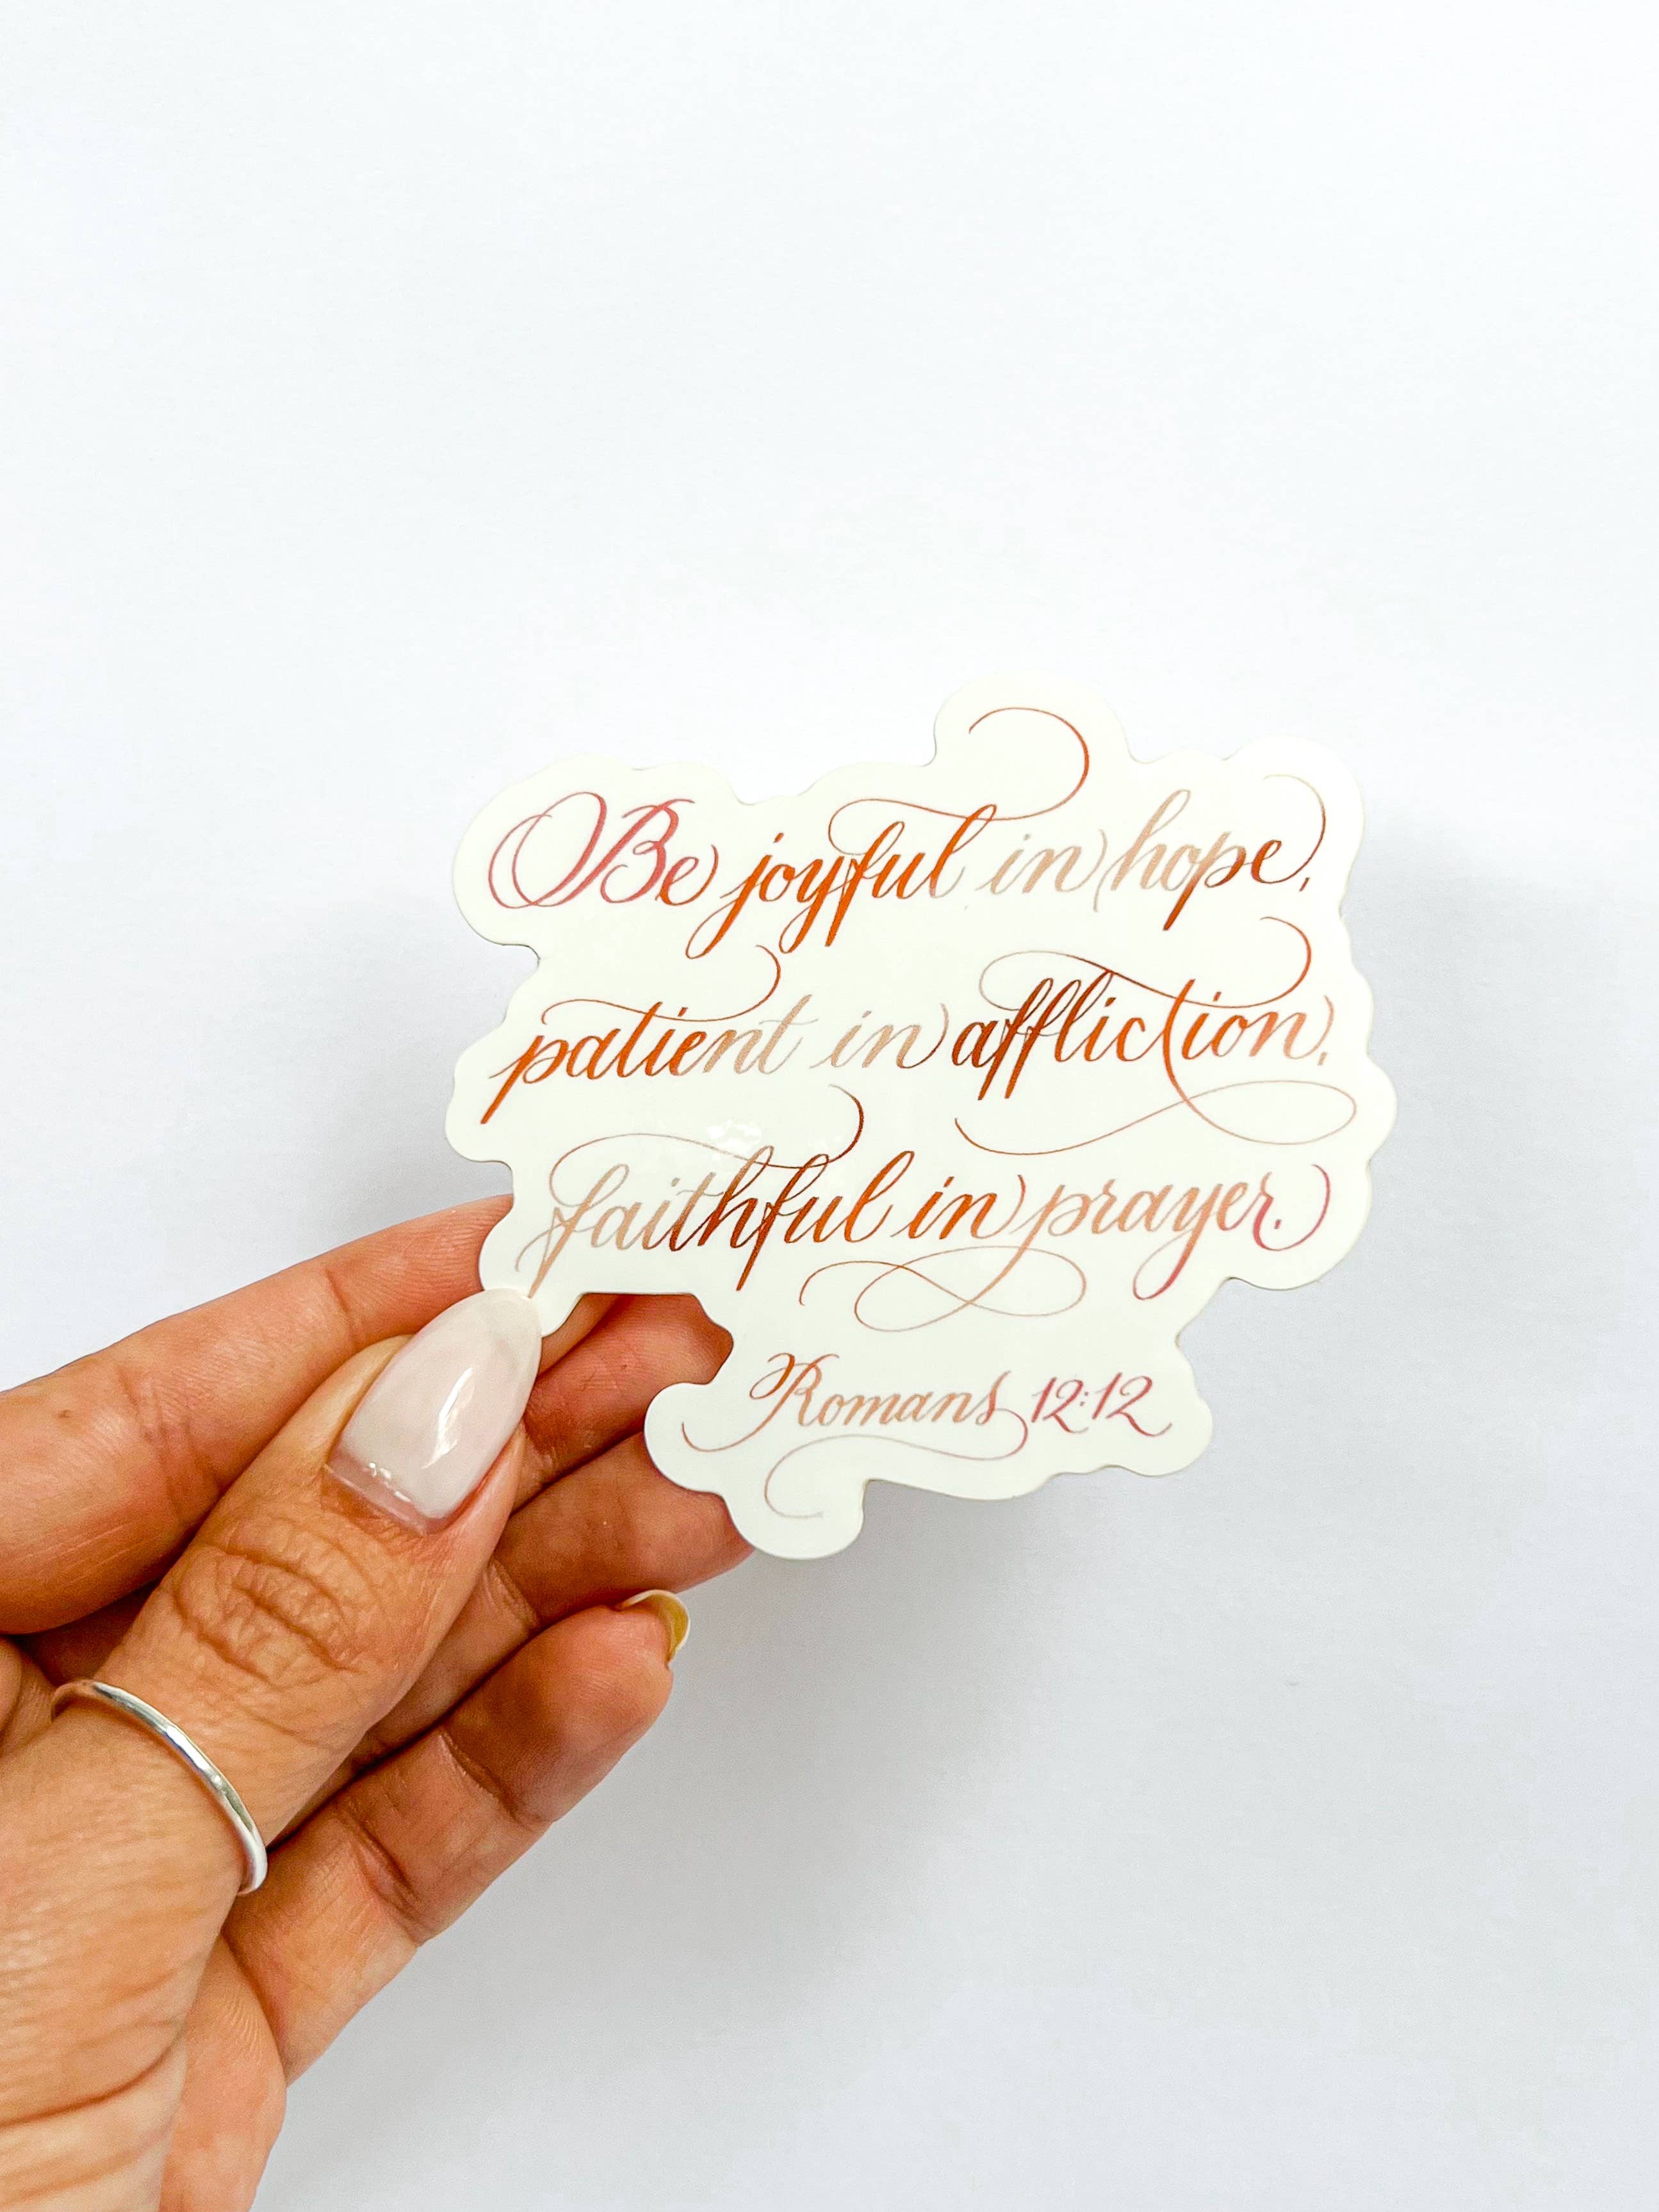 Be joyful in hope,
patient in affliction,
faithful in prayer.
Romans 12:12